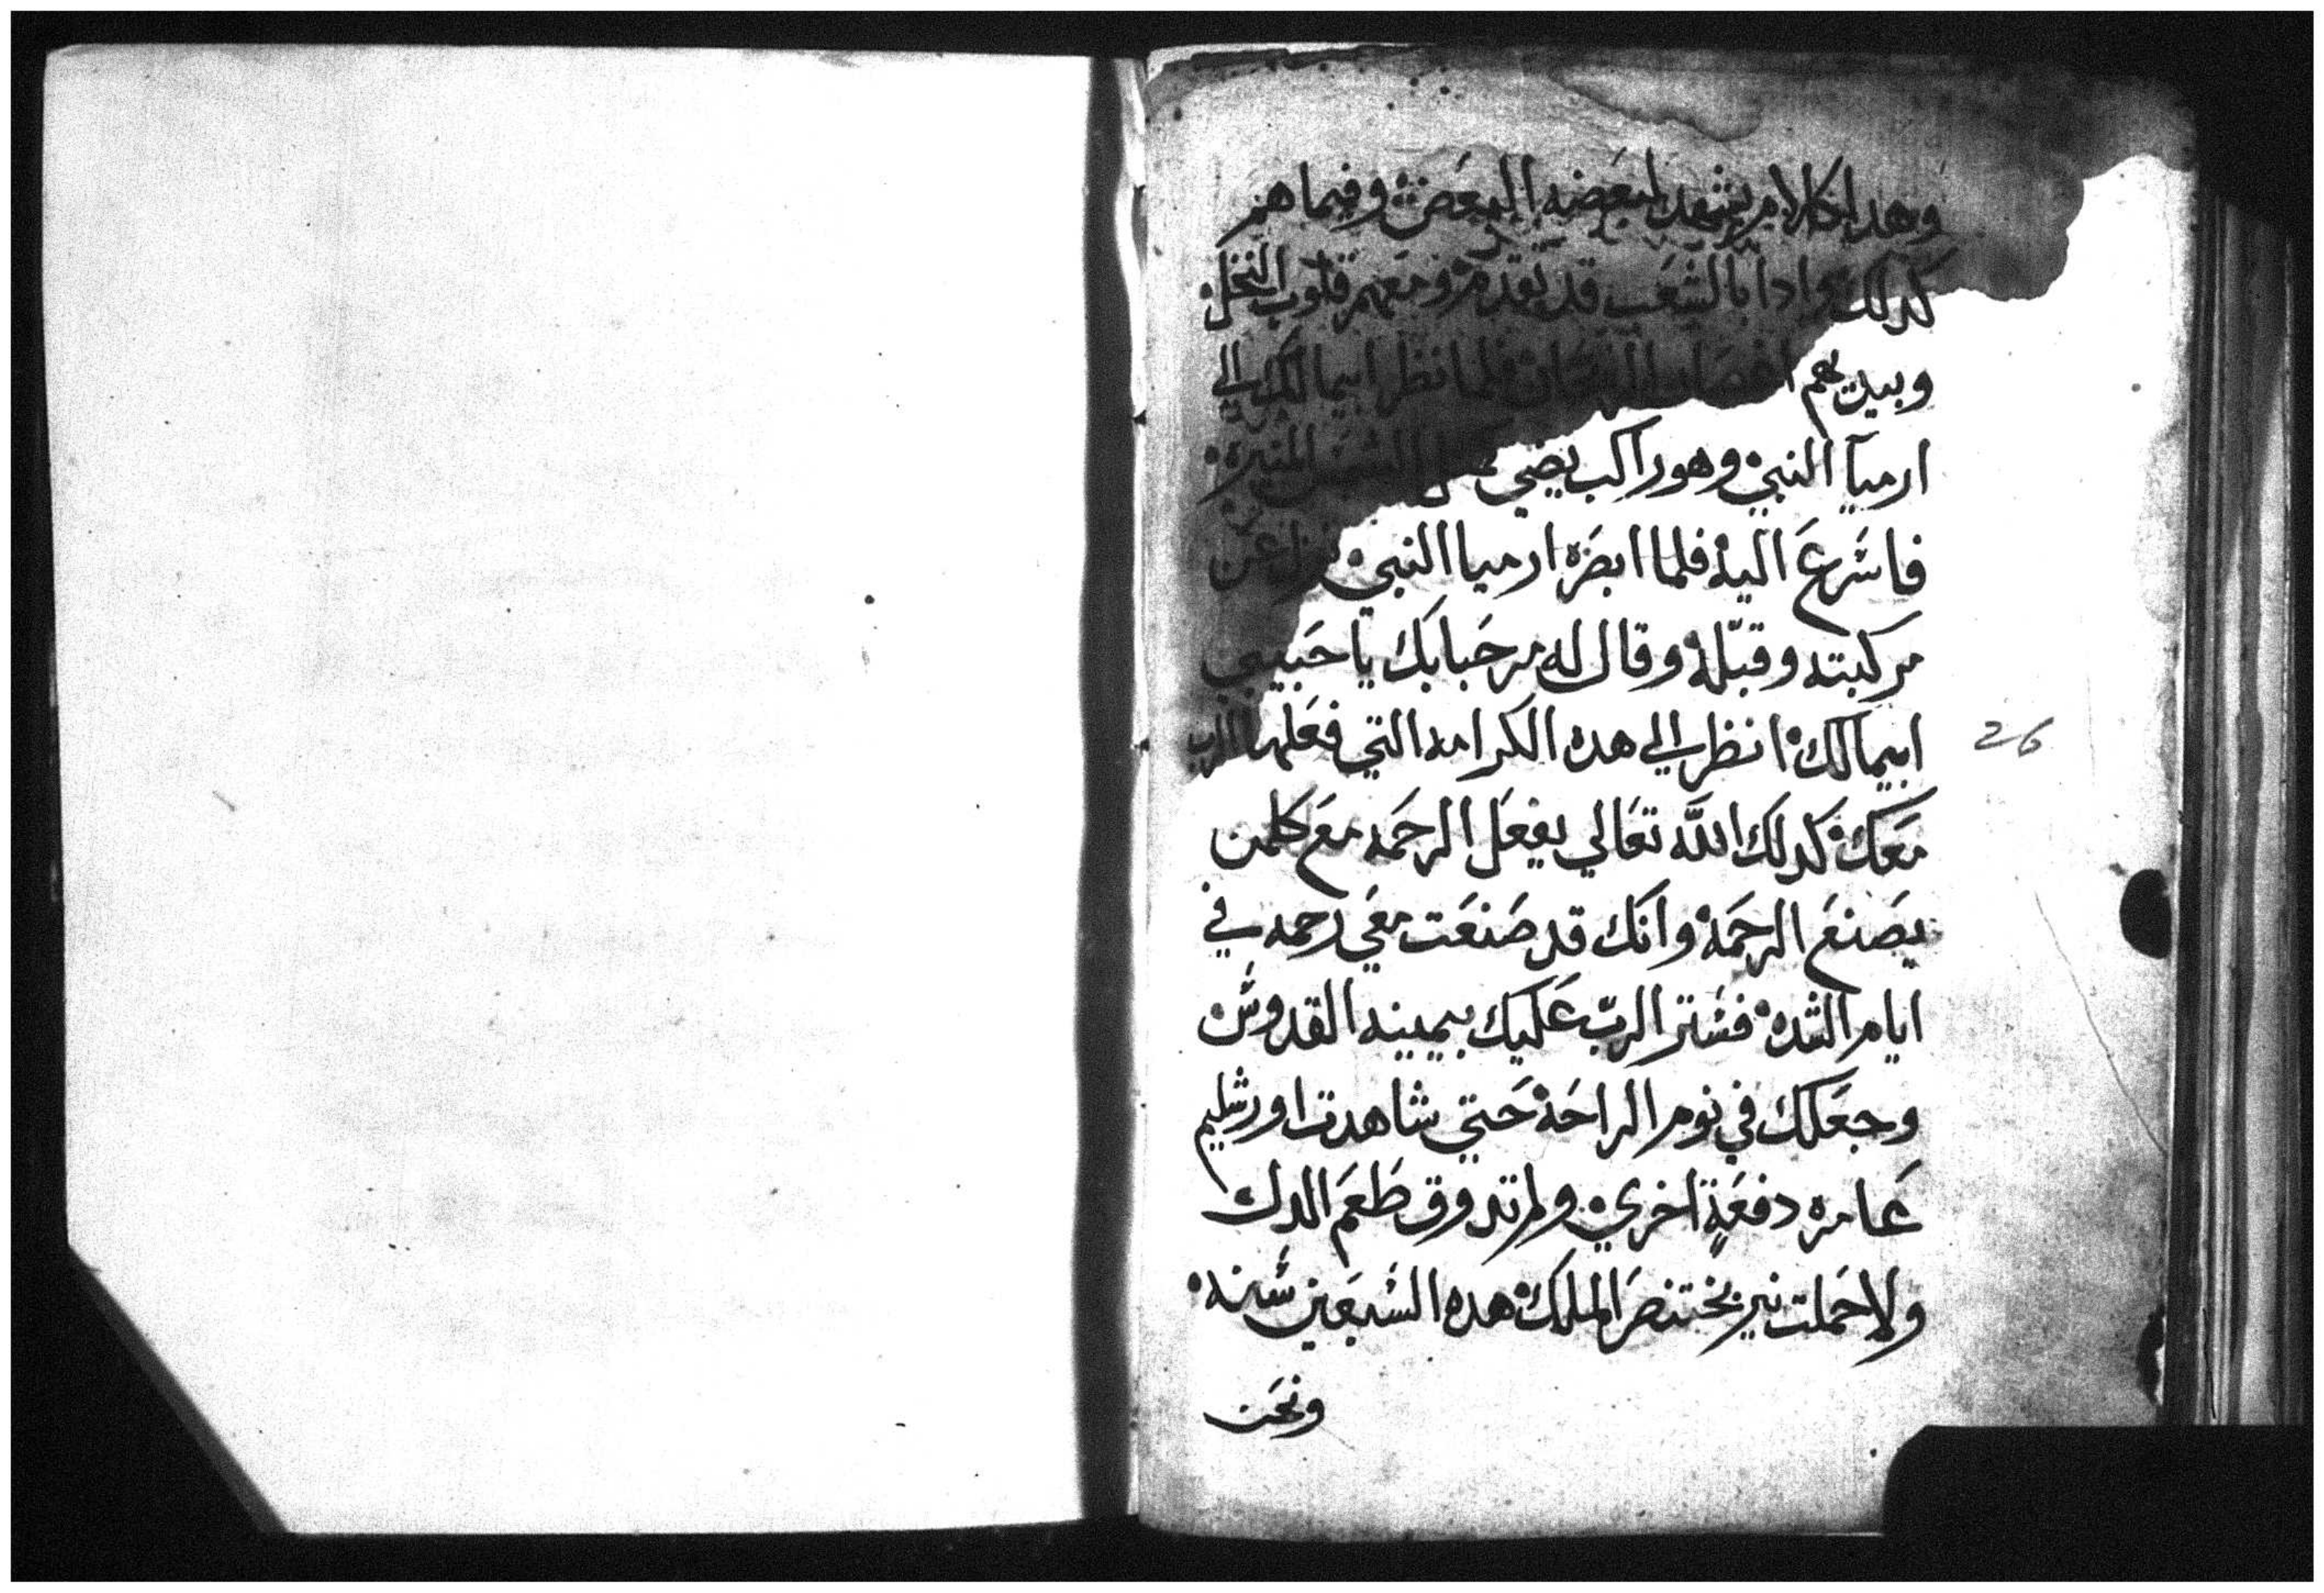 وهدا الكلام يشهد لبعضه البعض وفيما هم
كدلك وادا بالشعب قد يقدم ومعهم قلوب النخل
وبيديهم اغصان الريحان فلما نظر ابيمالك الي
ارميا النبي وهو راكب يضي الشمس المنيره
فاسرع اليه فلما ابصره ارميا النبي نزل عن
مركبته وقبله وقال له مرحبا بك يا حبيبي
ابيمالك انظر الي هده الكرامه التي فعلها الرب
معك كدلك الله تعالي يفعل الرحمه مع كلمن
يصنع الرحمه وانك قد صنعت معي رحمه في
ايام الشده فستر الرب عليك بيمينه القدوس
وجعلك في نوم الراحه حتي شاهدت اورشليم
عامره دفعة اخري ولم تدوق طعم الدل
ولا حملت نير بختنصر الملك هده السبعين سنه
ونحن
26